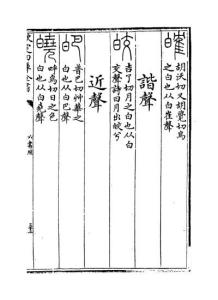 胡沃切又胡覺切鳥
之白也从白隺聲
諧聲
皎
吉了切月之白也从白
交聲詩月出皎兮
近聲
皅
普巴切艸華之
白也从白巴聲
皢
呼鳥切日之
白也从白堯聲
六書統